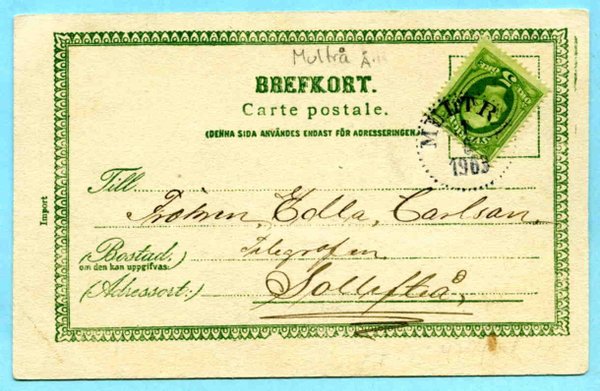 Multrå Å.
BREFKORT.
Carte postale.
(DENNA SIDA ANVÄNDES ENDAST FÖR ADRESSERINGEN.)
MULTR
1903
Till
Fröken, Edla, Carlson,
(Bostad.)
om den kan uppgifvas:
Telegrafen
(Adressort:)
Sollefteå,
Import